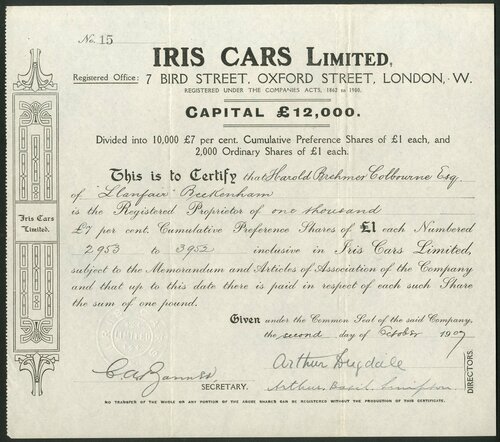 No. 15
IRIS CARS LIMITED,
Registered Office: 7 BIRD STREET, OXFORD STREET, LONDON, W.
REGISTERED UNDER THE COMPANIES ACTS, 1862 to 1900.
CAPITAL £12,000.
Divided into 10,000 £7 per cent. Cumulative Preference Shares of £1 each, and
2,000 Ordinary Shares of £1 each.
This is to Certify that Harold Brehmer Colbourne Esq.
of "Llanfair" Beckenham
is the Registered Proprietor of one thousand
£7 per cent. Cumulative Preference Shares of £1 each Numbered
2953 to 3952 inclusive in Iris Cars Limited,
subject to the Memorandum and Articles of Association of the Company
and that up to this date there is paid in respect of each such Share
the sum of one pound.
Iris Cars
Limited.
Given under the Common Seal of the said Company,
the second day of October 1907
Arthur Dugdale
Arthur
SECRETARY.
DIRECTORS.
NO TRANSFER OF THE WHOLE OR ANY PORTION OF THE ABOVE SHARES CAN BE REGISTERED WITHOUT THE PRODUCTION OF THIS CERTIFICATE.